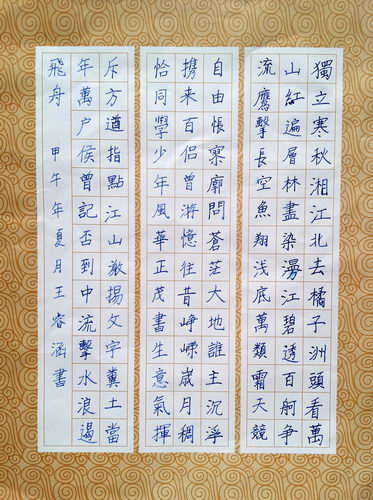 獨立寒秋湘江北去橘子洲頭看萬
山紅遍層林盡染漫江碧透百舸争
流鷹擊長空魚翔浅底萬類霜天競
自由悵寥廓問蒼茫大地誰主沉浮
携来百侣曾游憶往昔崢嶸歲月稠
恰同學少年風華正茂書生意氣揮
斥方遒指點江山激揚文字糞土當
年萬户侯曾記否到中流擊水浪遏
飛舟 甲午年夏月王睿涵書